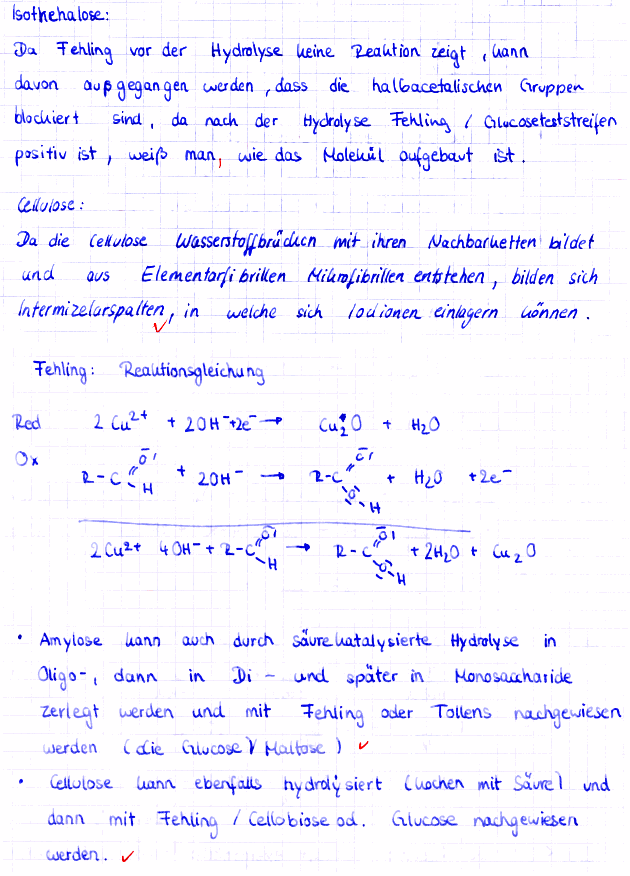 Isotrehalose:
Da Fehling vor der Hydrolyse keine Reaktion zeigt, kann
davon aufgegangen werden, dass die halbacetalischen Gruppen
blockiert sind, da nach der Hydrolyse Fehling / Glucoseteststreifen
positiv ist, weiß man, wie das Molekül aufgebaut ist.
Cellulose:
Da die Cellulose Wasserstoffbrücken mit ihren Nachbarketten bildet
und aus Elementarfibrillen Mikrofibrillen entstehen, bilden sich
Intermizelarspalten, in welche sich Iodionen einlagern können.
Fehling: Reaktionsgleichung
Red 2 Cu²⁺ + 2OH⁻ + 2e⁻ → Cu₂O + H₂O
Ox R-C O H + 2OH⁻ → R-C O O H + H₂O + 2e⁻
2Cu²⁺ 4OH⁻ + R-C O H → R-C O O H + 2H₂O + Cu₂O
• Amylose kann auch durch säurekatalysierte Hydrolyse in
Oligo-, dann in Di- und später in Monosaccharide
zerlegt werden und mit Fehling oder Tollens nachgewiesen
werden (die Glucose / Maltose)
• Cellulose kann ebenfalls hydrolysiert (kochen mit Säure) und
dann mit Fehling / Cellobiose od. Glucose nachgewiesen
werden.